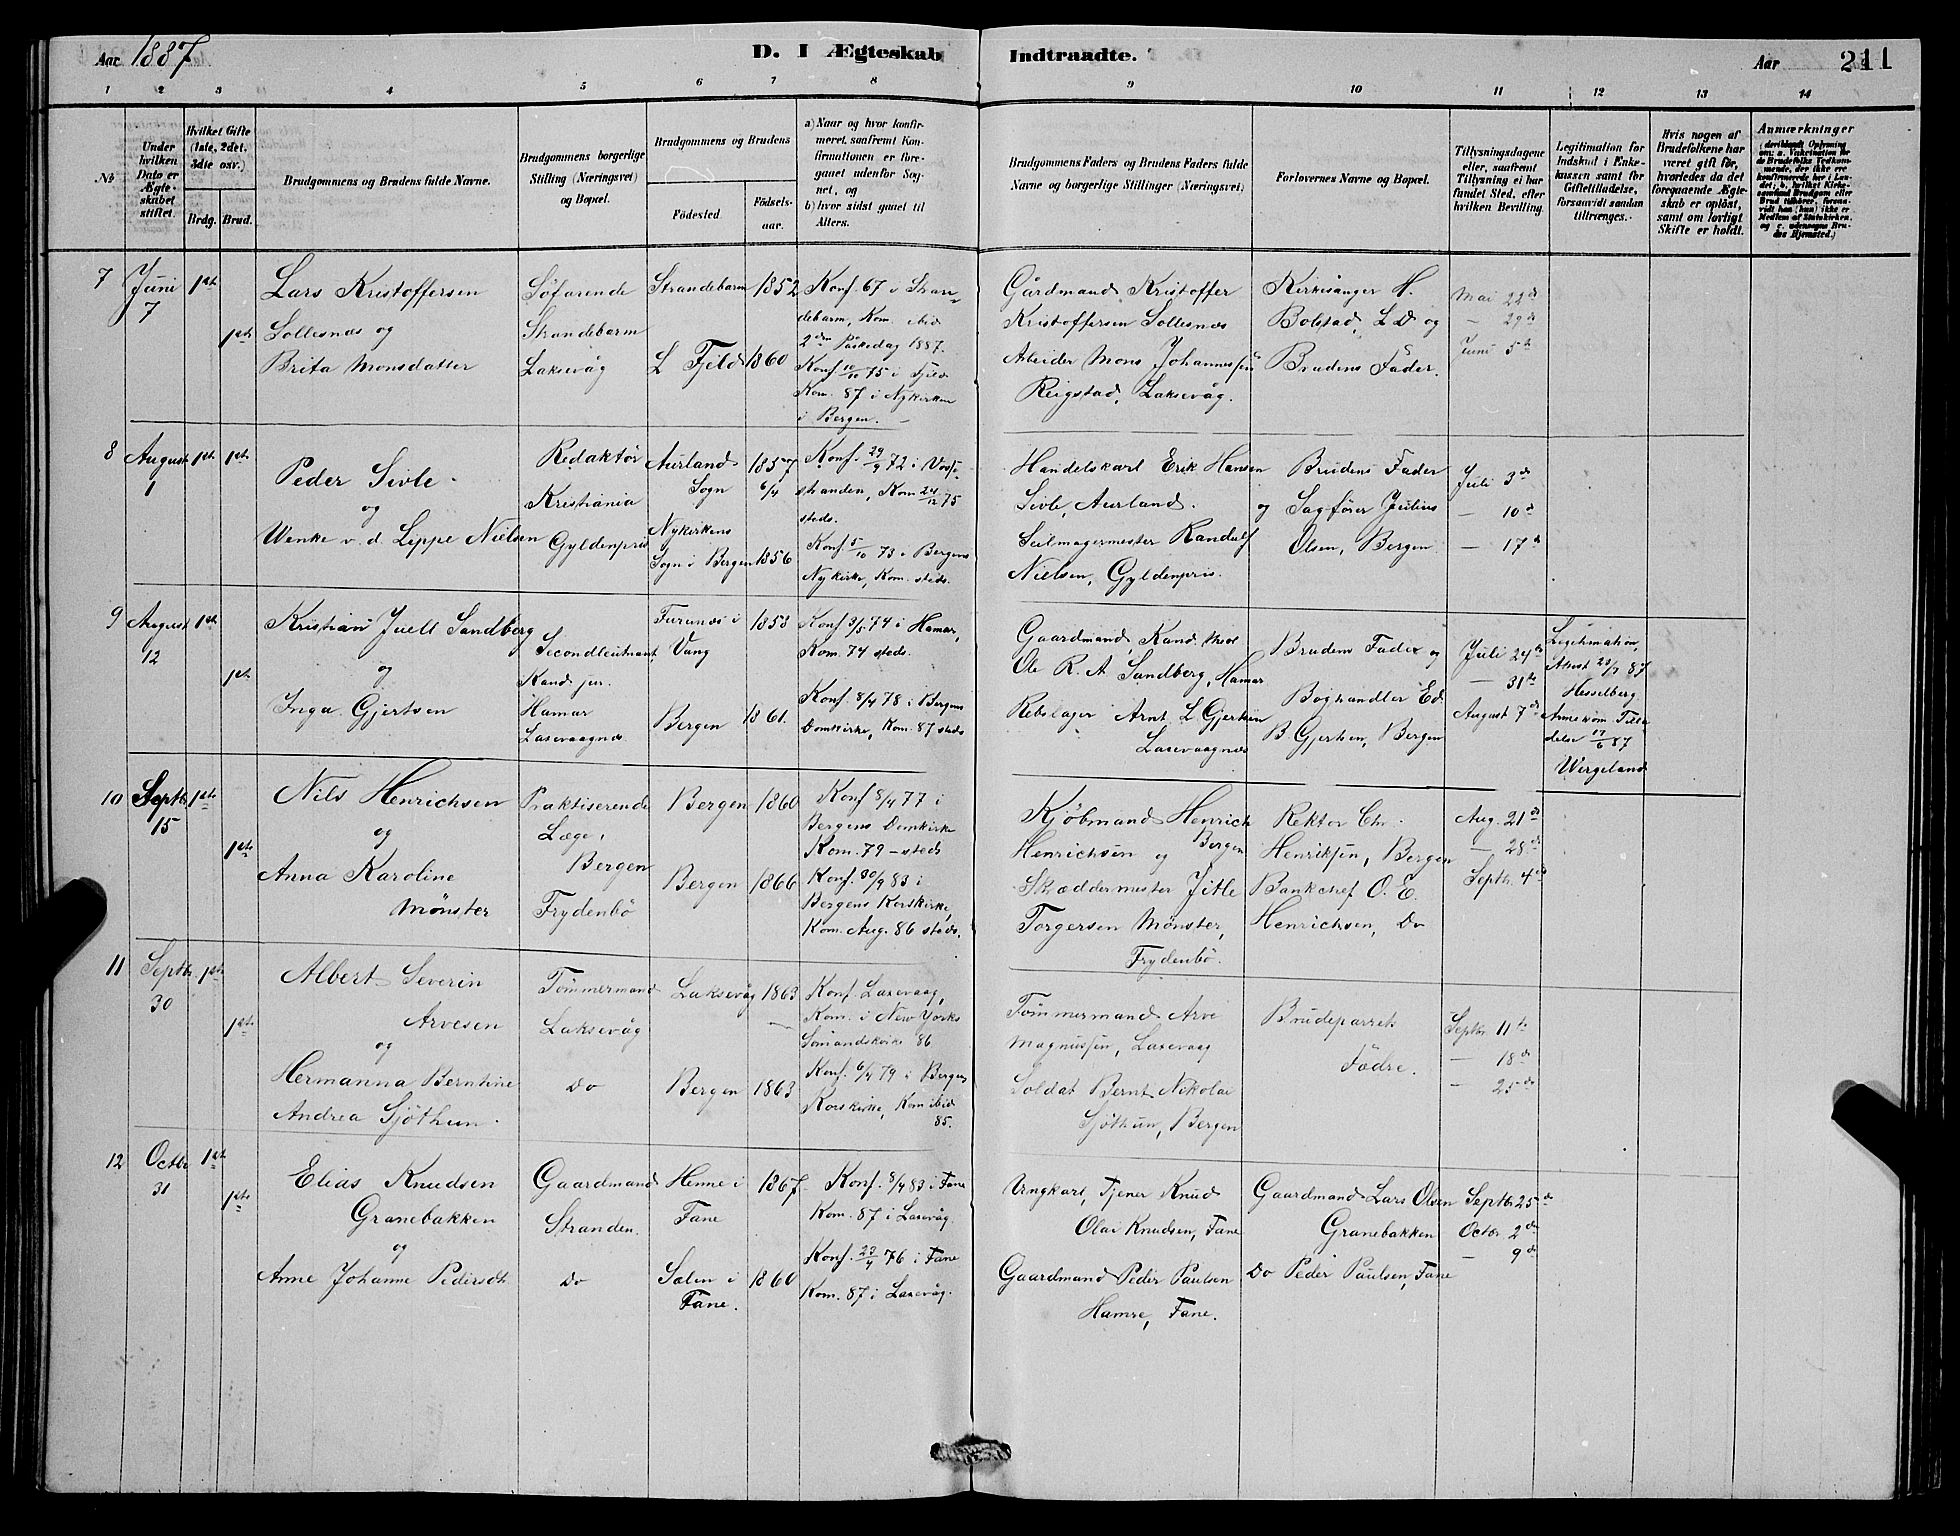 Aar 1887
D. I Ægteskab Indtraadte.
Aar 211
1 2 3 4 5 6 7 8 9 10 11 12 13 14
№
Under hvilken Dato er Ægteskabet stiftet.
Hvilket Gifte (1ste, 2det, 3die osv.)
Brdg. Brud.
Brudgommens og Brudens fulde Navne.
Brudgommens borgerlige Stilling (Næringsvei) og Bopæl.
Brudgommens og Brudens
Fødested. Fødselsaar.
a) Naar og hvor konfirmeret, saafremt Konfirmationen er foregaaet udenfor Sognet, og
b) hvor sidst gaaet til Alters.
Brudgommens Faders og Brudens Faders fulde Navne og borgerlige Stillinger (Næringsvei).
Forlovernes Navne og Bopæl.
Tillysningsdagene eller, saafremt Tillysning ei har fundet Sted, efter hvilken Bevilling.
Legitimation for Indskud i Enkekassen samt for Giftetilladelse, forsaavidt saadan tiltrænges.
Hvis nogen af Brudefolkene har været gift før, hvorledes da det foregaaende Ægteskab er opløst, samt om lovligt Skifte er holdt.
Anmærkninger
7
Juni
7
1ste
1ste
Lars Kristoffersen
Sollesnæs og
Brita Monsdatter
Söfarende
Strandebarm
Laksevåg
Strandebarm
L Fjeld
1852
1860
Konf. 67 i Stran=
debarm, Kom. ibid
2den Påskedag 1887.
Konf. 10/10 75 i Fjeld
Kom. 87 i Nykirken
i Bergen.
Gårdmand Kristoffer
Kristoffersen Sollesnæs
Arbeider Mons Johannessen
Reigstad, Laksevåg.
Kirkesånger H.
Bolstad, L D og
Brudens Fader.
Mai 22de
— 29de
Juni 5te
8
August
1
1ste
1ste
Peder Sivle
og
Wenke v. d. Lippe Nielsen
Redaktör
Kristiania
Gyldenpris
Aurland
Sogn
Nykirkens
Sogn i Bergen
1857
6/4
1856
Konf. 29/9 72 i Vosse
stranden, Kom 24/12 75
steds.
Konf 5/10 73 i Bergens
Nykirke, Kom. steds.
Handelskarl Erik Hansen
Sivle, Aurland. og
Seilmagermester Randulf
Nielsen, Gyldenpris.
Brudens Fader
Sagförer Julius
Olsen, Bergen
Juli 3de
— 10de
— 17de
9
August
12
1ste
1ste
Kristian Juell Sandberg
og
Inga Gjertsen
Secondleutnant,
Kand. jur.
Hamar
Laxevaagnæs
Furunæs i
Vang
Bergen
1858
1861.
Konf 3/5 74 i Hamar,
Kom. 74 steds.
Konf. 8/4 78 i Bergens
Domkirke, Kom. 87 steds
Gaardmand, Kand. theol
Ole R. A Sandberg, Hamar
Rebslager Arnt L Gjertsen
Laxevaagnæs
Brudens Fader og
Boghandler Ed.
B Gjertsen, Bergen
Juli 24de
— 31te
August 7de
Legitimation,
Hesselberg
delse 17/6 87
Wergeland
10
Septb.
15
1ste
1ste
Nils Henrichsen
og
Anna Karoline
Mönster
Praktiserende
Læge,
Bergen
Frydenbö
Bergen
Bergen
1860
1866
Konf 8/4 77 i
Bergens Domkirke
Kom. 79 – steds
Konf. 30/9 83 i
Bergens Korskirke,
Kom. Aug. 86 steds.
Kjöbmand Henrich
Henrichsen og Bergen
Skræddermester Jitle
Torgersen Mönster,
Frydenbö.
Rektor Chr.
Henriksen, Bergen
Bankchef O. E.
Henrichsen, Do
Aug. 21de
— 28de
Septb. 4de
11
Septbr.
30
1ste
1ste
Albert Severin
Arvesen
og
Hermanna Berntine
Andrea Sjöthun.
Tömmermand
Laksevåg
Do
Laksevåg
Bergen
1863
1863
Konf. Laxevaag,
Kom. i New Yorks
Sömandskirke 86
Konf. 6/4 79 i Bergens
Korskirke, Kom ibid
85.
Tömmermand Arve
Magnussen, Laxevaag
Soldat Bernt Nikolai
Sjöthun, Bergen
Brudeparrets
Fådre.
Septbr. 11te
— 18de
— 25de
12
Octbr
31
1ste
1ste
Elias Knudsen
Granebakken
og
Anne Johanne Pedersdtr
Gaardmand
Stranden.
Do
Henne i
Fane
Sælen i
Fane.
1867
1860
Konf. 8/4 83 i Fane
Kom. 87 i Laxevåg.
Konf. 23/4 76 i Fane
Kom. 87 i Laxevåg.
Ungkarl, Tjener Knud
Olai Knudsen, Fane
Gaardmand Peder Paulsen
Hamre, Fane.
Gaardmand Lars Olsen
Granebakken
Do Peder Paulsen, Fane
Septb. 25de
Octbr 2de
— 9de